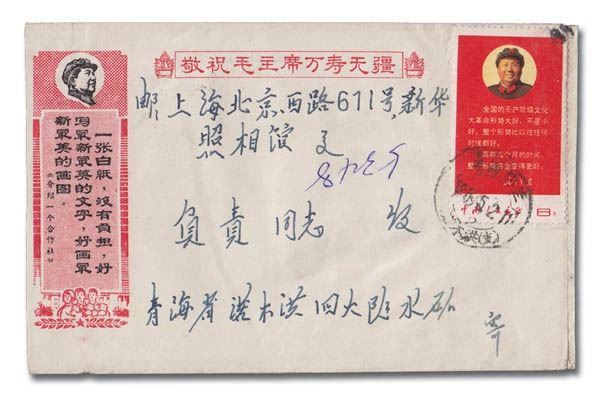 敬祝毛主席万寿无疆
一张白紙，没有負担，好
写最新最美的文字，好画最
新最美的画图。
《介绍一个合作社》
邮上海北京西路611号新华
照相馆 交
負責同志 收
青海省
全国的无产阶级文化
大革命形势大好，不是小
好。整个形势比以往任何
时候都好。
再有几个月的时间，
整个形势将会变得更好。
8分